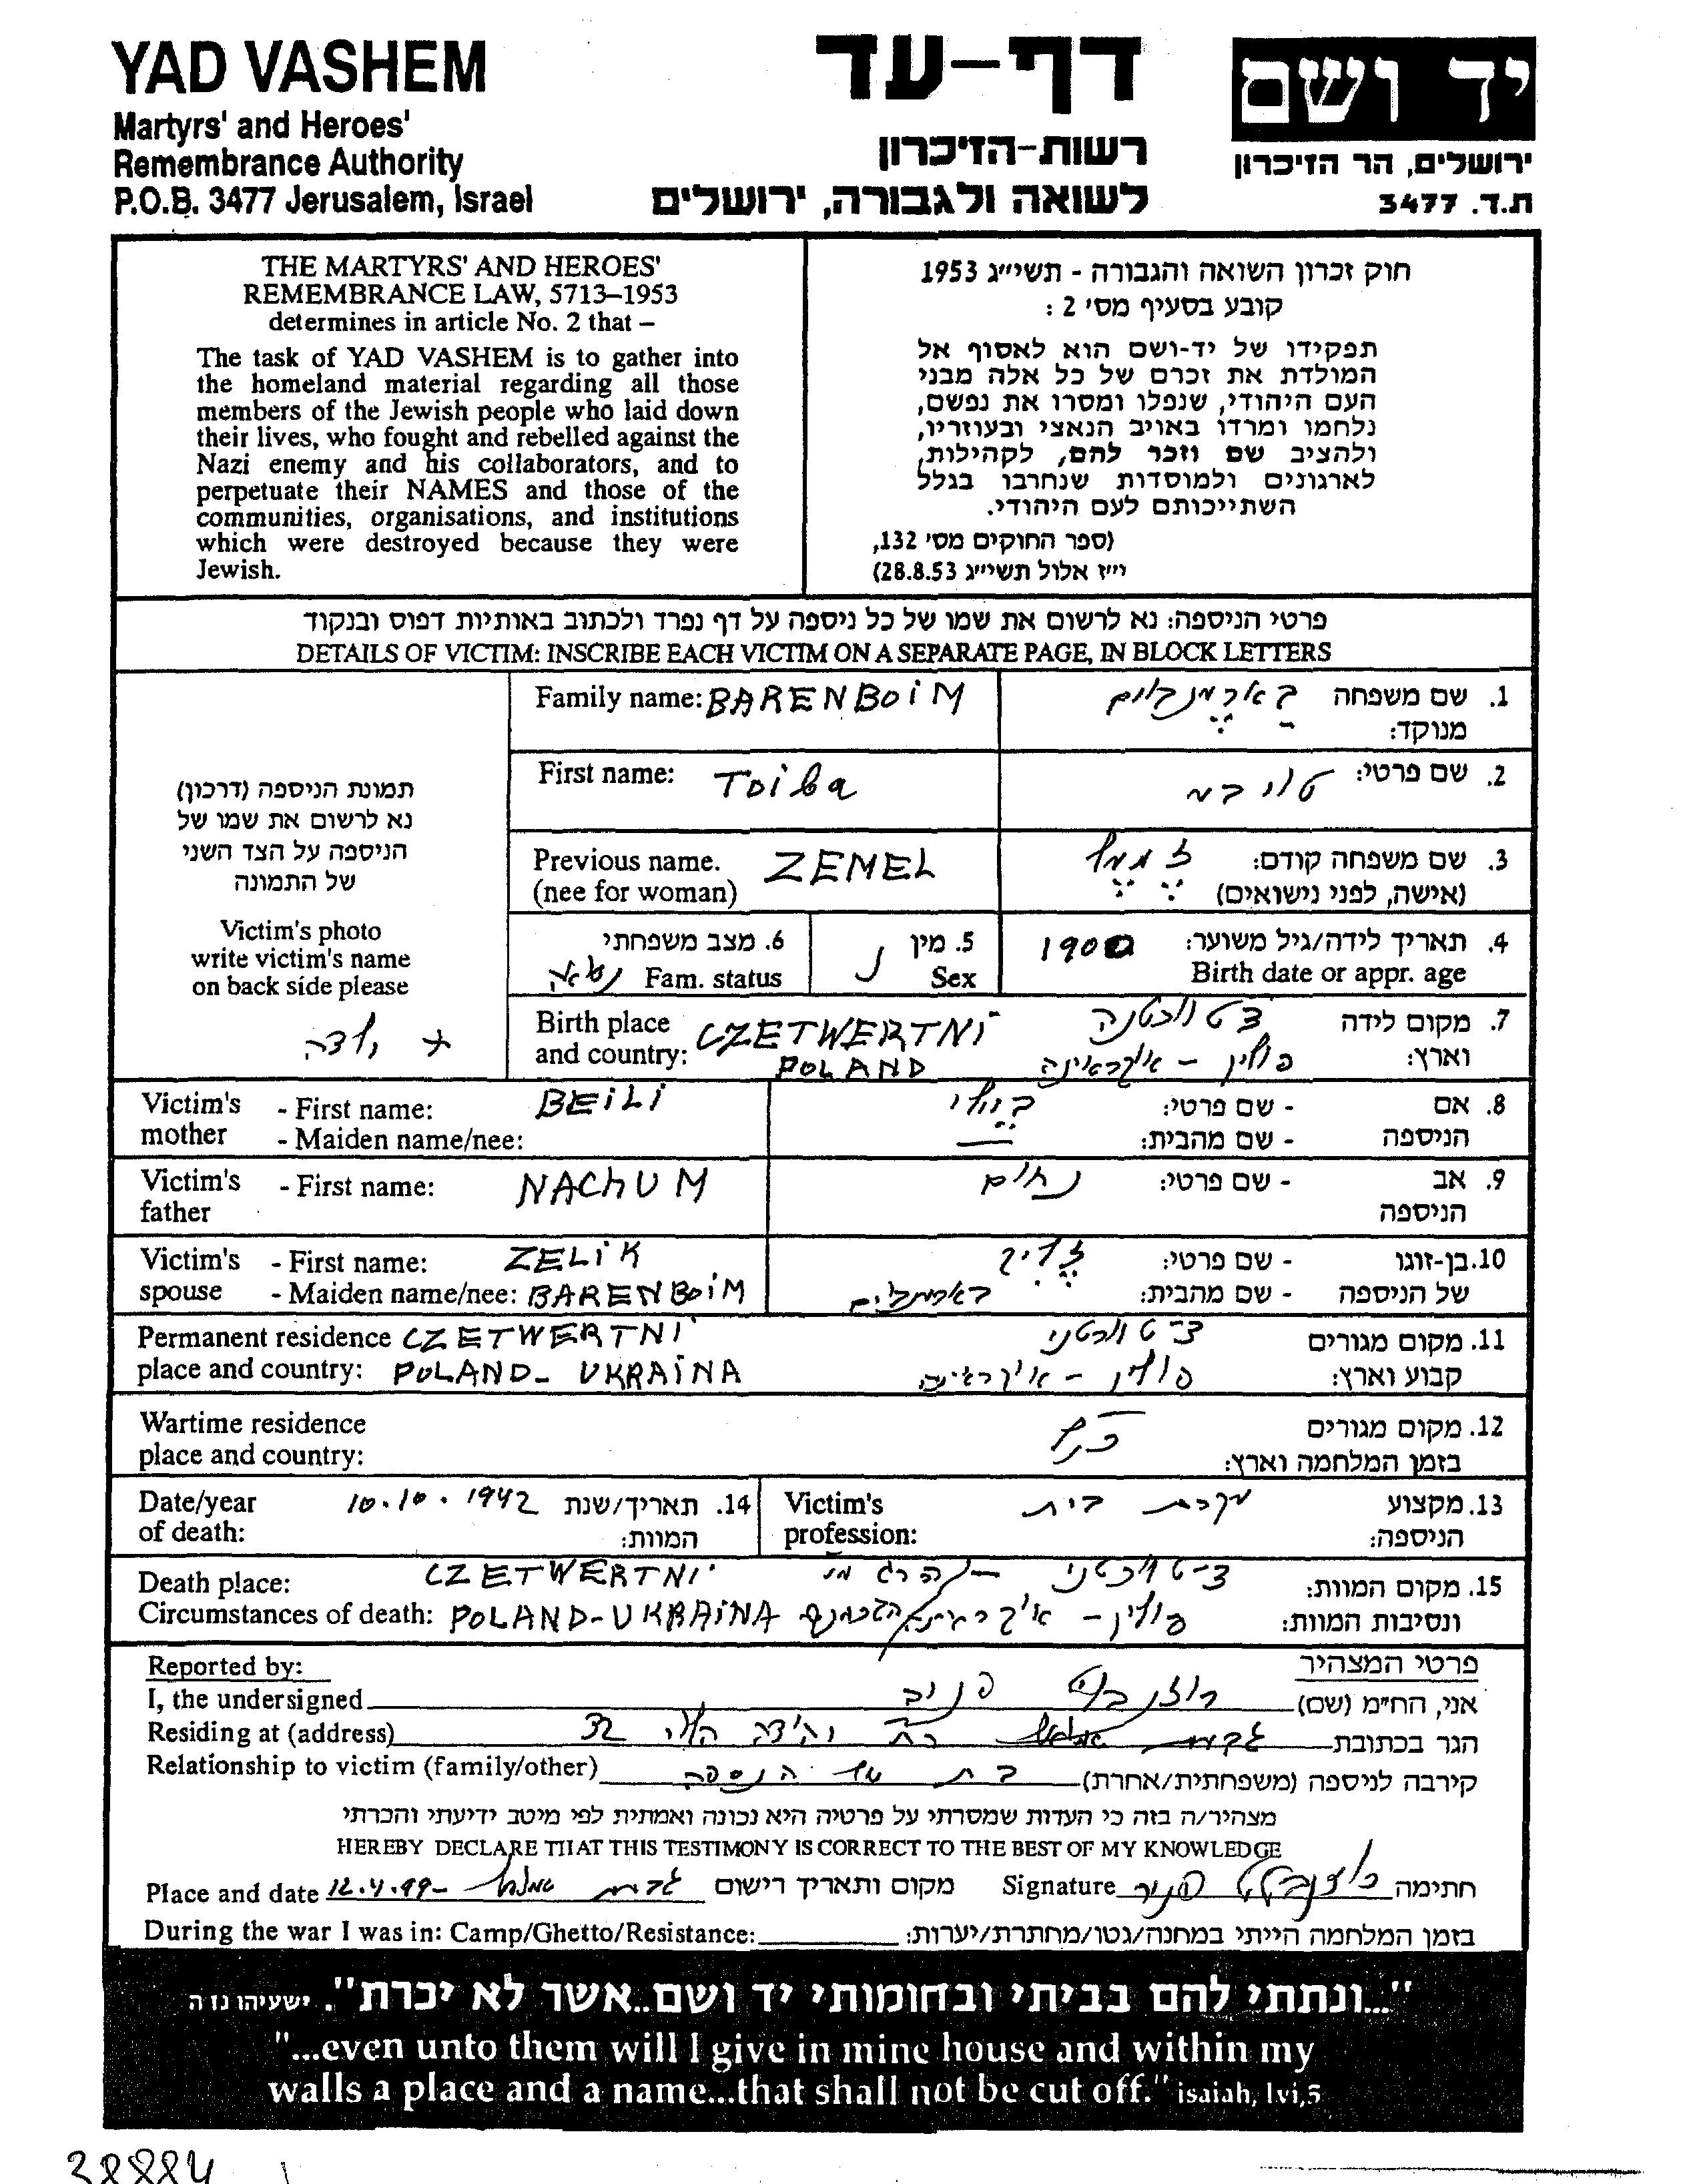 YAD VASHEM
Martyrs' and Heroes'
Remembrance Authority
P.O.B. 3477 Jerusalem, Israel
דף-עד
רשות-הזיכרון
לשואה ולגבורה, ירושלים
יד ושם
ירושלים, הר הזיכרון
ת.ד. 3477
THE MARTYRS' AND HEROES'
REMEMBRANCE LAW, 5713–1953
determines in article No. 2 that –
The task of YAD VASHEM is to gather into
the homeland material regarding all those
members of the Jewish people who laid down
their lives, who fought and rebelled against the
Nazi enemy and his collaborators, and to
perpetuate their NAMES and those of the
communities, organisations, and institutions
which were destroyed because they were
Jewish.
חוק זכרון השואה והגבורה - תשי״ג 1953
קובע בסעיף מס' 2 :
תפקידו של יד-ושם הוא לאסוף אל
המולדת את זכרם של כל אלה מבני
העם היהודי, שנפלו ומסרו את נפשם,
נלחמו ומרדו באויב הנאצי ובעוזריו,
ולהציב שם וזכר להם, לקהילות,
לארגונים ולמוסדות שנחרבו בגלל
השתייכותם לעם היהודי.
(ספר החוקים מס' 132,
י״ז אלול תשי״ג 28.8.53)
פרטי הניספה: נא לרשום את שמו של כל ניספה על דף נפרד ולכתוב באותיות דפוס ובנקוד
DETAILS OF VICTIM: INSCRIBE EACH VICTIM ON A SEPARATE PAGE, IN BLOCK LETTERS
תמונת הניספה (דרכון)
נא לרשום את שמו של
הניספה על הצד השני
של התמונה
Victim's photo
write victim's name
on back side please
Family name: BARENBOiM
1. שם משפחה בארנבוים
מנוקד:
First name: Toiba
2. שם פרטי: טויבה
Previous name. ZEMEL
(nee for woman)
3. שם משפחה קודם: זמל
(אישה, לפני נישואים)
4. תאריך לידה/גיל משוער: 1900
Birth date or appr. age
5. מין נ
Sex
6. מצב משפחתי
Fam. status נשואה
Birth place CZETWERTNI
and country: POLAND
7. מקום לידה צטוורטנה
וארץ: פולין - אוקראינה
Victim's - First name: BEiLi
mother - Maiden name/nee:
8. אם - שם פרטי: ביילי
הניספה - שם מהבית:
Victim's - First name: NAChUM
father
9. אב - שם פרטי: נחום
הניספה
Victim's - First name: ZELiK
spouse - Maiden name/nee: BARENBoiM
10. בן-זוגו - שם פרטי: זליק
של הניספה - שם מהבית: בארנבוים
Permanent residence CZETWERTNI
place and country: POLAND- UKRAiNA
11. מקום מגורים צטוורטני
קבוע וארץ: פולין - אוקראינה
Wartime residence
place and country:
12. מקום מגורים כנ״ל
בזמן המלחמה וארץ:
Date/year
of death:
14. תאריך/שנת 10.10.1942
המוות:
Victim's
profession:
13. מקצוע עקרת בית
הניספה:
Death place: CZETWERTNI
Circumstances of death: POLAND-UKRAiNA
15. מקום המוות: צטוורטני
ונסיבות המוות: פולין - אוקראינה
Reported by:
I, the undersigned
Residing at (address)
Relationship to victim (family/other)
פרטי המצהיר
אני, הח״מ (שם) רוזנבלט
הגר בכתובת 32
קירבה לניספה (משפחתית/אחרת) בת של הנספה
מצהיר/ה בזה כי העדות שמסרתי על פרטיה היא נכונה ואמתית לפי מיטב ידיעתי והכרתי
HEREBY DECLARE THAT THIS TESTIMONY IS CORRECT TO THE BEST OF MY KNOWLEDGE
Place and date 12.4.99- מקום ותאריך רישום
Signature חתימה
During the war I was in: Camp/Ghetto/Resistance:
בזמן המלחמה הייתי במחנה/גטו/מחתרת/יערות:
"...ונתתי להם בביתי ובחומותי יד ושם..אשר לא יכרת". ישעיהו נו ה
"...even unto them will I give in mine house and within my
walls a place and a name...that shall not be cut off." isaiah, lvi,5
38884